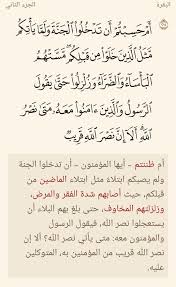 الجزء الثاني البقرة
أَمْ حَسِبْتُمْ أَن تَدْخُلُوا۟ ٱلْجَنَّةَ وَلَمَّا يَأْتِكُم
مَّثَلُ ٱلَّذِينَ خَلَوْا۟ مِن قَبْلِكُم ۖ مَّسَّتْهُمُ
ٱلْبَأْسَآءُ وَٱلضَّرَّآءُ وَزُلْزِلُوا۟ حَتَّىٰ يَقُولَ
ٱلرَّسُولُ وَٱلَّذِينَ ءَامَنُوا۟ مَعَهُۥ مَتَىٰ نَصْرُ
ٱللَّهِ ۗ أَلَآ إِنَّ نَصْرَ ٱللَّهِ قَرِيبٌ
أم ظننتم - أيها المؤمنون - أن تدخلوا الجنة
ولم يصبكم ابتلاء مثل ابتلاء الماضين من
قبلكم، حيث أصابهم شدة الفقر والمرض،
وزلزلتهم المخاوف، حتى بلغ بهم البلاء أن
يستعجلوا نصر الله، فيقول الرسول
والمؤمنون معه: متى يأتي نصر الله؟ ألا إن
نصر الله قريب من المؤمنين به، المتوكلين
عليه.